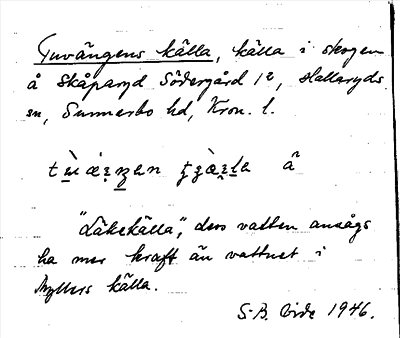 Tuvängens källa, källa i skogen
å Skåparyd Södergård 1², Hallaryds
sn, Sunnerbo hd, Kron. l.
å
"Läkekälla", dess vatten ansågs
ha mer kraft än vattnet i
källa.
S. B. Vide 1946.